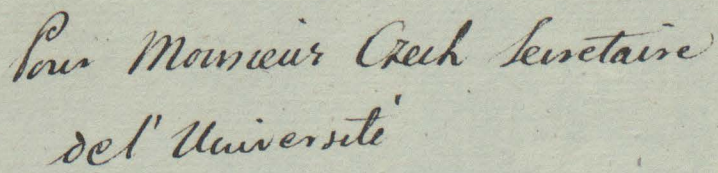 Pour Monsieur Czech Secretaire
de l'Université